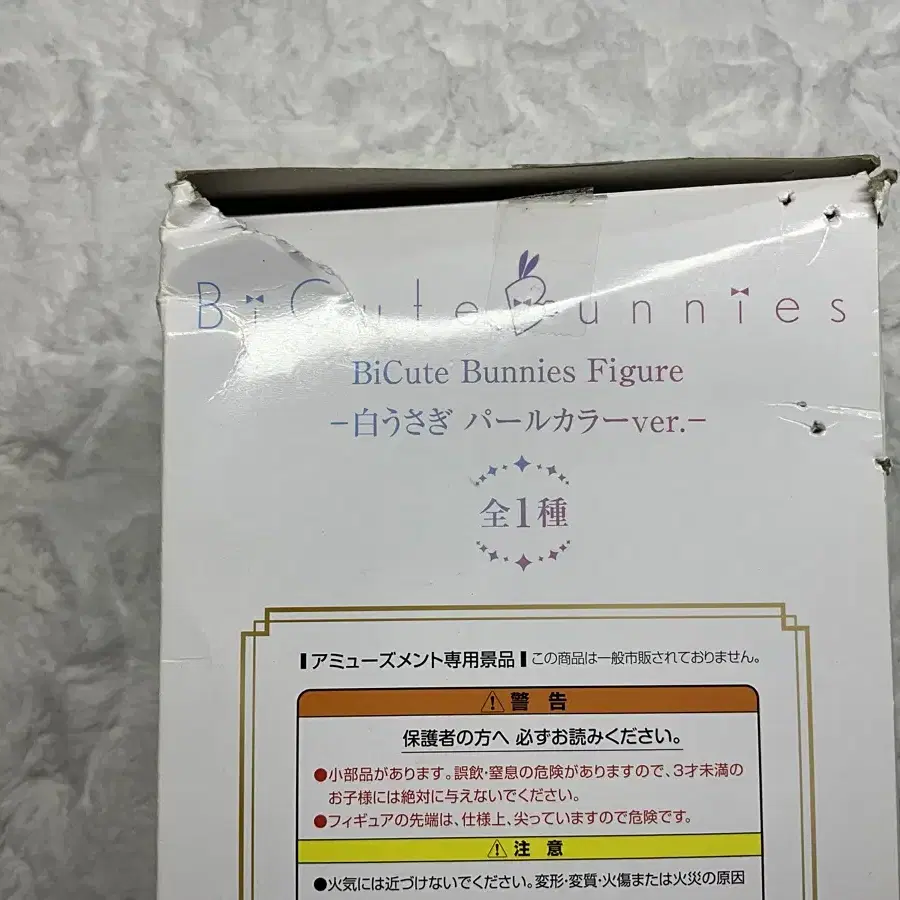 BiCute Bunnies
BiCute Bunnies Figure
-白うさぎ パールカラーver.-
全1種
アミューズメント専用景品 この商品は一般市販されておりません。
⚠警告
保護者の方へ 必ずお読みください。
●小部品があります。誤飲・窒息の危険がありますので、3才未満の
お子様には絶対に与えないでください。
●フィギュアの先端は、仕様上、尖っていますので危険です。
⚠注意
●火気には近づけないでください。変形・変質・火傷または火災の原因